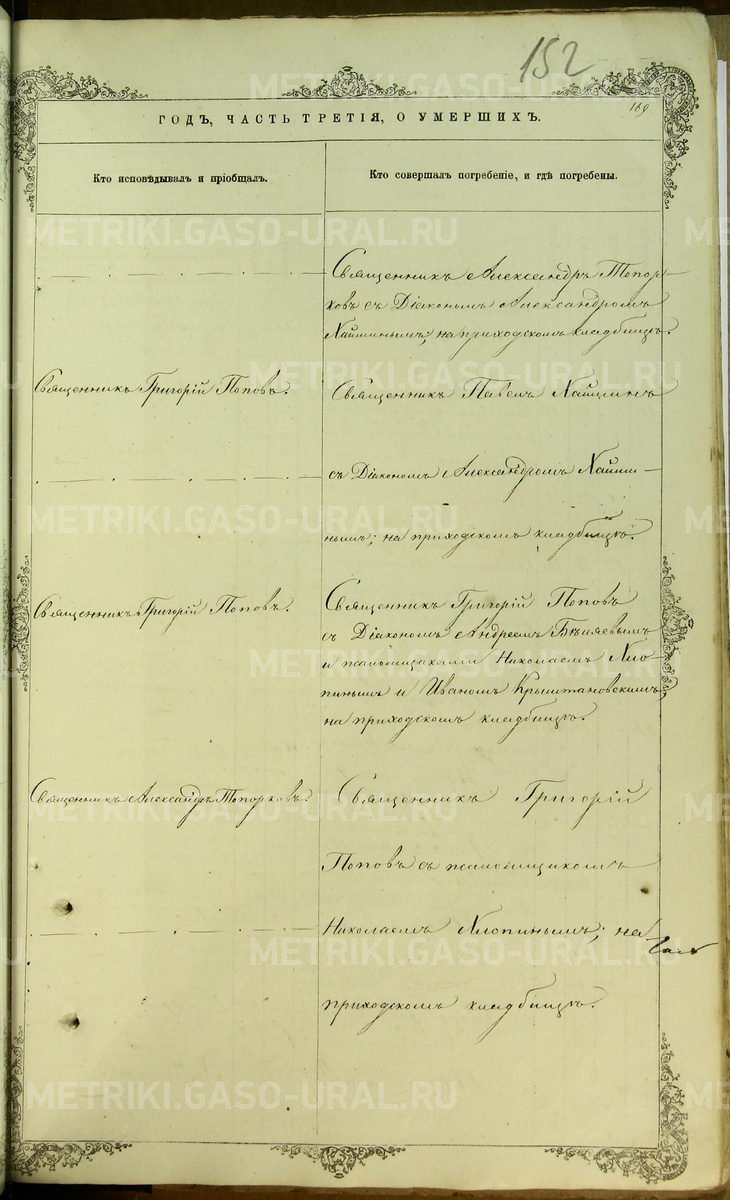 152
169
ГОДЪ, ЧАСТЬ ТРЕТІЯ, О УМЕРШИХЪ.
Кто исповѣдывалъ и пріобщалъ.
Кто совершалъ погребеніе, и гдѣ погребены.
Священникъ Александръ Топор-
ковъ съ Діакономъ Александромъ
Наминымъ; на приходскомъ кладбищѣ.
Священникъ Григорій Поповъ.
Священникъ Павелъ
съ Діакономъ Александромъ
нымъ; на приходскомъ кладбищѣ.
Священникъ Григорій Поповъ.
Священникъ Григорій Поповъ
съ Діакономъ Андреемъ Бѣляевымъ
и псаломщиками Николаемъ Хло-
пинымъ и Иваномъ Крыштановскимъ,
на приходскомъ кладбищѣ.
Священникъ Александръ Топорковъ.
Священникъ Григорій
Поповъ съ псаломщикомъ
Николаемъ Хлопинымъ; на
приходскомъ кладбищѣ.
METRIKI.GASO-URAL.RU